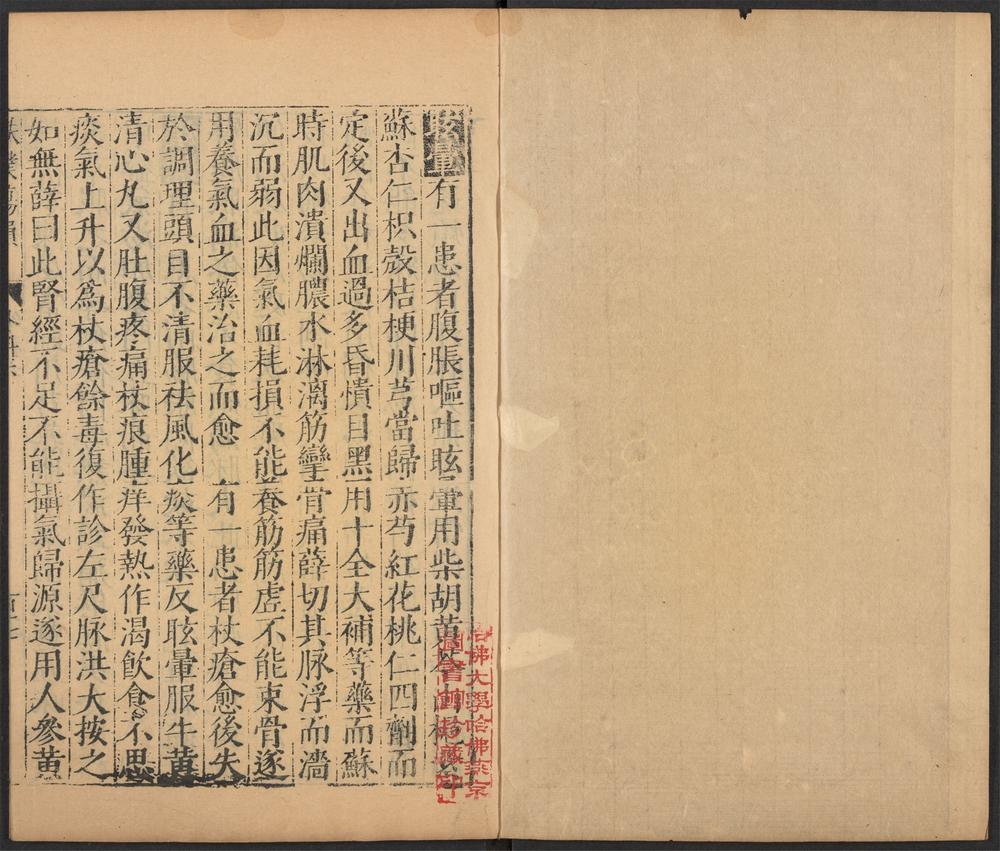 眩暈有一患者腹脹嘔吐眩暈用柴胡黃
蘇杏仁枳殼桔梗川芎當歸赤芍紅花桃仁四劑而
定後又出血過多昏憒目黑用十全大補等藥而蘇
時肌肉潰爛膿水淋漓筋攣骨痛薛切其脉浮而濇
沉而弱此因氣血耗損不能養筋筋虛不能束骨遂
用養氣血之藥治之而愈 有一患者杖瘡愈後失
於調理頭目不清服祛風化痰等藥反眩暈服牛黃
清心丸又肚腹疼痛杖痕腫痒發熱作渴飲食不思
痰氣上升以爲杖瘡餘毒復作診左尺脉洪大按之
如無薛曰此腎經不足不能攝氣歸源遂用人參黃
哈佛大學哈佛燕京
圖書館珍藏印